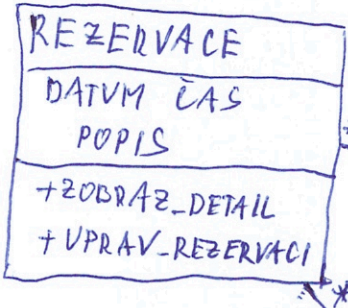 REZERVACE
DATUM ČAS
POPIS
+ZOBRAZ_DETAIL
+UPRAV_REZERVACI
*